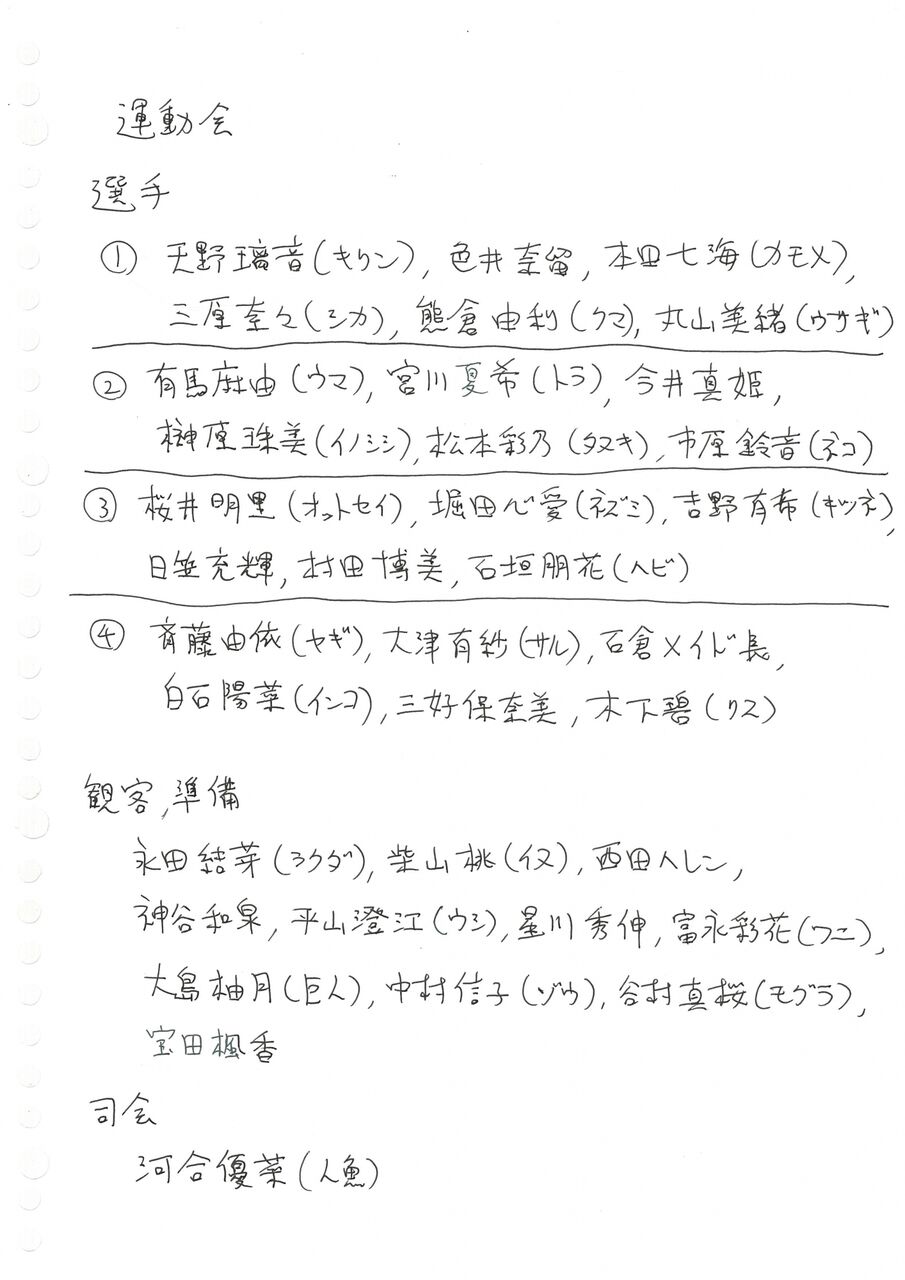 運動会
選手
① 天野璃音(キリン), 色井奈留, 本田七海(カモメ),
三原奈々(シカ), 熊倉由利(クマ), 丸山美緒(ウサギ)
② 有馬麻由(ウマ), 宮川夏希(トラ), 今井真姫,
榊原珠美(イノシシ), 松本彩乃(タヌキ), 市原鈴音(ネコ)
③ 桜井明里(オットセイ), 堀田心愛(ネズミ), 吉野有希(キツネ),
日笠充輝, 村田博美, 石垣朋花(ヘビ)
④ 斉藤由依(ヤギ), 大津有紗(サル), 石倉メイド長,
白石陽菜(インコ), 三好保奈美, 木下碧(リス)
観客, 準備
永田結芽(ラクダ), 柴山桃(イヌ), 西田ヘレン,
神谷和泉, 平山澄江(ウシ), 星川秀伸, 富永彩花(ワニ),
大島柚月(巨人), 中村信子(ゾウ), 谷村真桜(モグラ),
宝田楓香
司会
河合優菜(人魚)